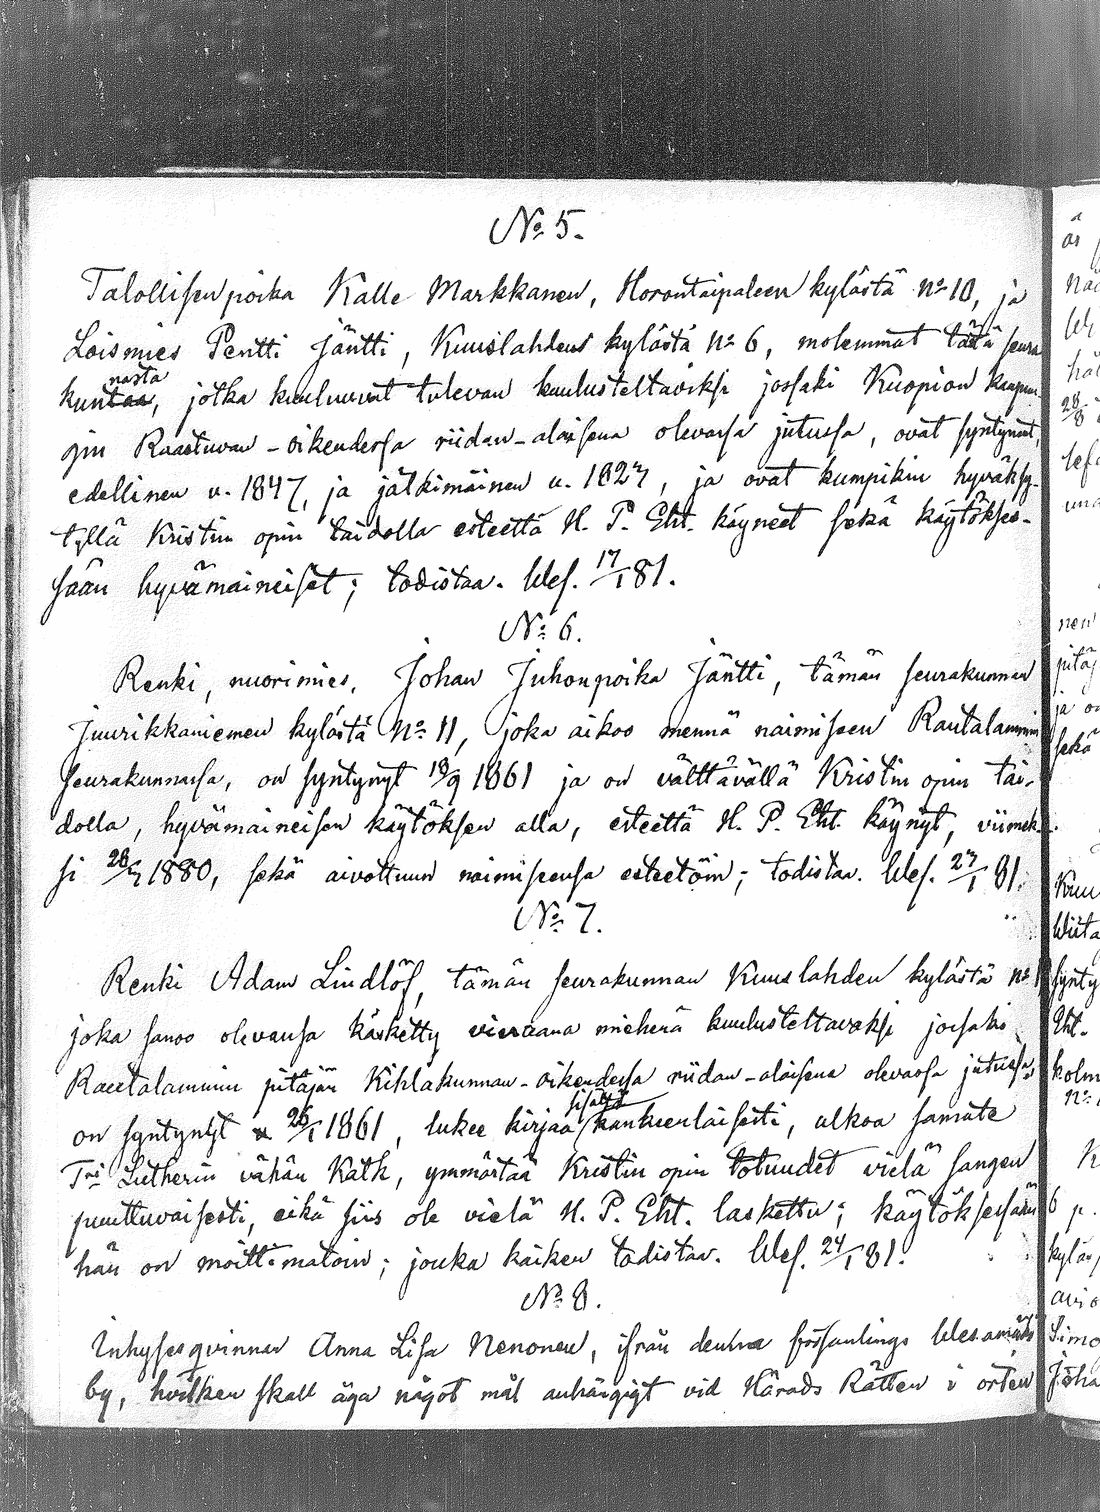 No 5.
Talollisenpoika Kalle Markkanen, Horontaipaleen kylästä no 10, ja
Loismies Pentti Jäntti, Kuuslahden kylästä no 6, molemmat tästä seura
kunnasta, jotka kuuluvat tulevan kuulusteltaviksi jossaki Kuopion kaupun-
gin Raastuvan-oikeudessa riidan-alaisena olevassa jutussa, ovat syntynnt,
edellinen v. 1847, ja jälkimäinen v. 1827, ja ovat kumpikin hyväksy-
tyllä Kristin opin taidolla esteettä H. P. Eht. käyneet sekä käytökses-
sään hyvämaineiset; todistaa. Wes. 17/1 81.
No 6.
Renki, nuorimies, Johan Juhonpoika Jäntti, tämän seurakunnan
Juurikkaniemen kylästä No 11, joka aikoo mennä naimiseen Rautalammin
seurakunnassa, on syntynyt 18/9 1861 ja on välttävällä Kristin opin tai-
dolla, hyvämaineisen käytöksen alla, esteettä H. P. Eht. käynyt, viimek-
si 1880, sekä aivottuun naimiseensa esteetöin; todistaa. Wes. 27/1 81.
No 7.
Renki Adam Lindlöf, tämän seurakunnan Kuuslahden kylästä no
joka sanoo olevansa käsketty vieraana miehenä kuulusteltavaksi jossaki
Rautalammin pitäjän Kihlakunnan-oikeudessa riidan-alaisena olevassa jutussa,
on syntynyt 26/1 1861, lukee kirjaa sisältä kankeenlaisesti, ulkoa samate
Tri Lutherin vähän Kath, ymmärtää Kristin opin totuudet vielä sangen
puuttuvaisesti, eikä siis ole vielä H. P. Eht. laskettu; käytöksessään
hän on moittimatoin; jonka kaiken todistaa. Wes. 24/1 81.
No 8.
Inhysesqvinnan Anna Lisa Nenonen, ifrån denna församlings Wesamäki
by, hvilken skall äga något mål anhängigt vid Härads Rätten i orten